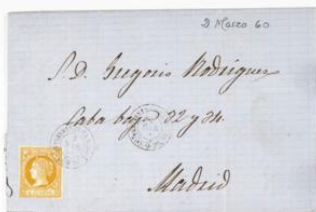 2 Marzo 60
S. D. Gregorio Rodriguez
Caba baja 32 y 34.
Madrid